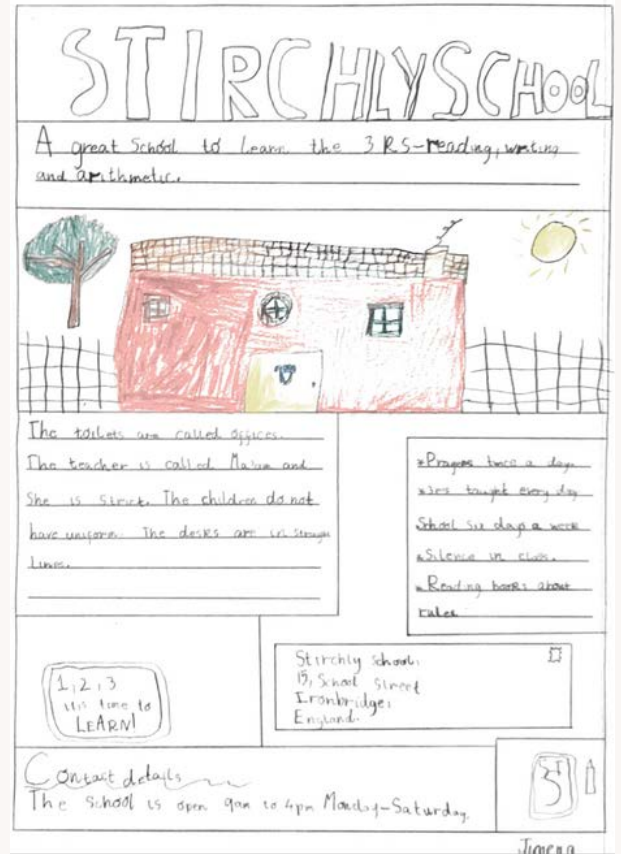 STIRCHLYSCHOOL
A great School to learn the 3 RS-reading, writing
and arithmetic.
The toilets are called offices.
The teacher is called Ma'am and
She is strict. The children do not
have uniform. The desks are in straight
lines.
*Prayers twice a day.
*3rs taught every day
School six days a week
*Silence in class.
*Reading books about
rules
1, 2, 3
it is time to
LEARN!
Stirchly School,
15, School Street
Ironbridge,
England.
Contact details
The School is open 9am to 4pm Monday-Saturday.
Jimena